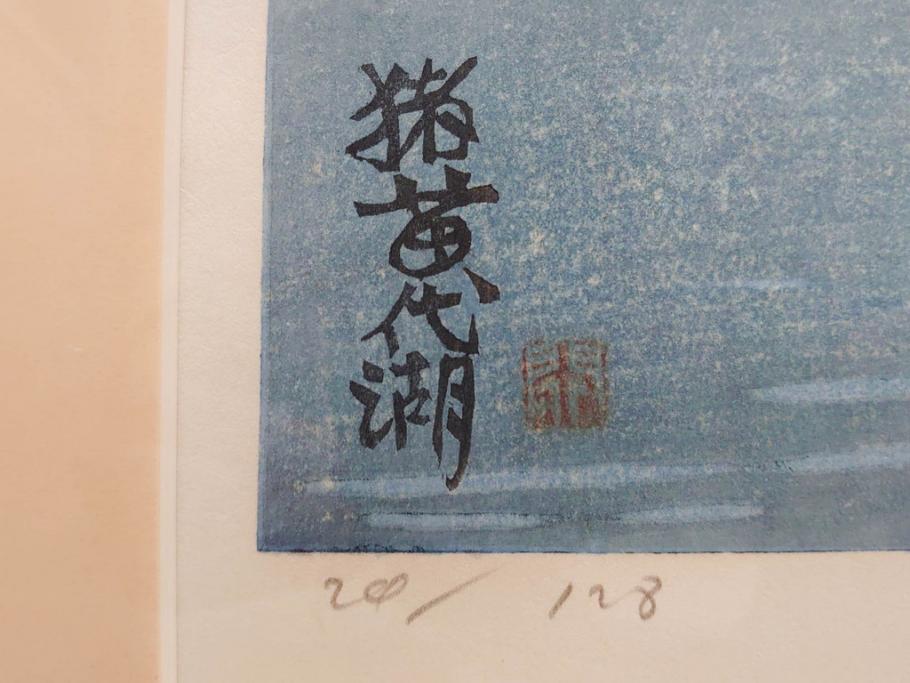 猪苗代湖
20/128